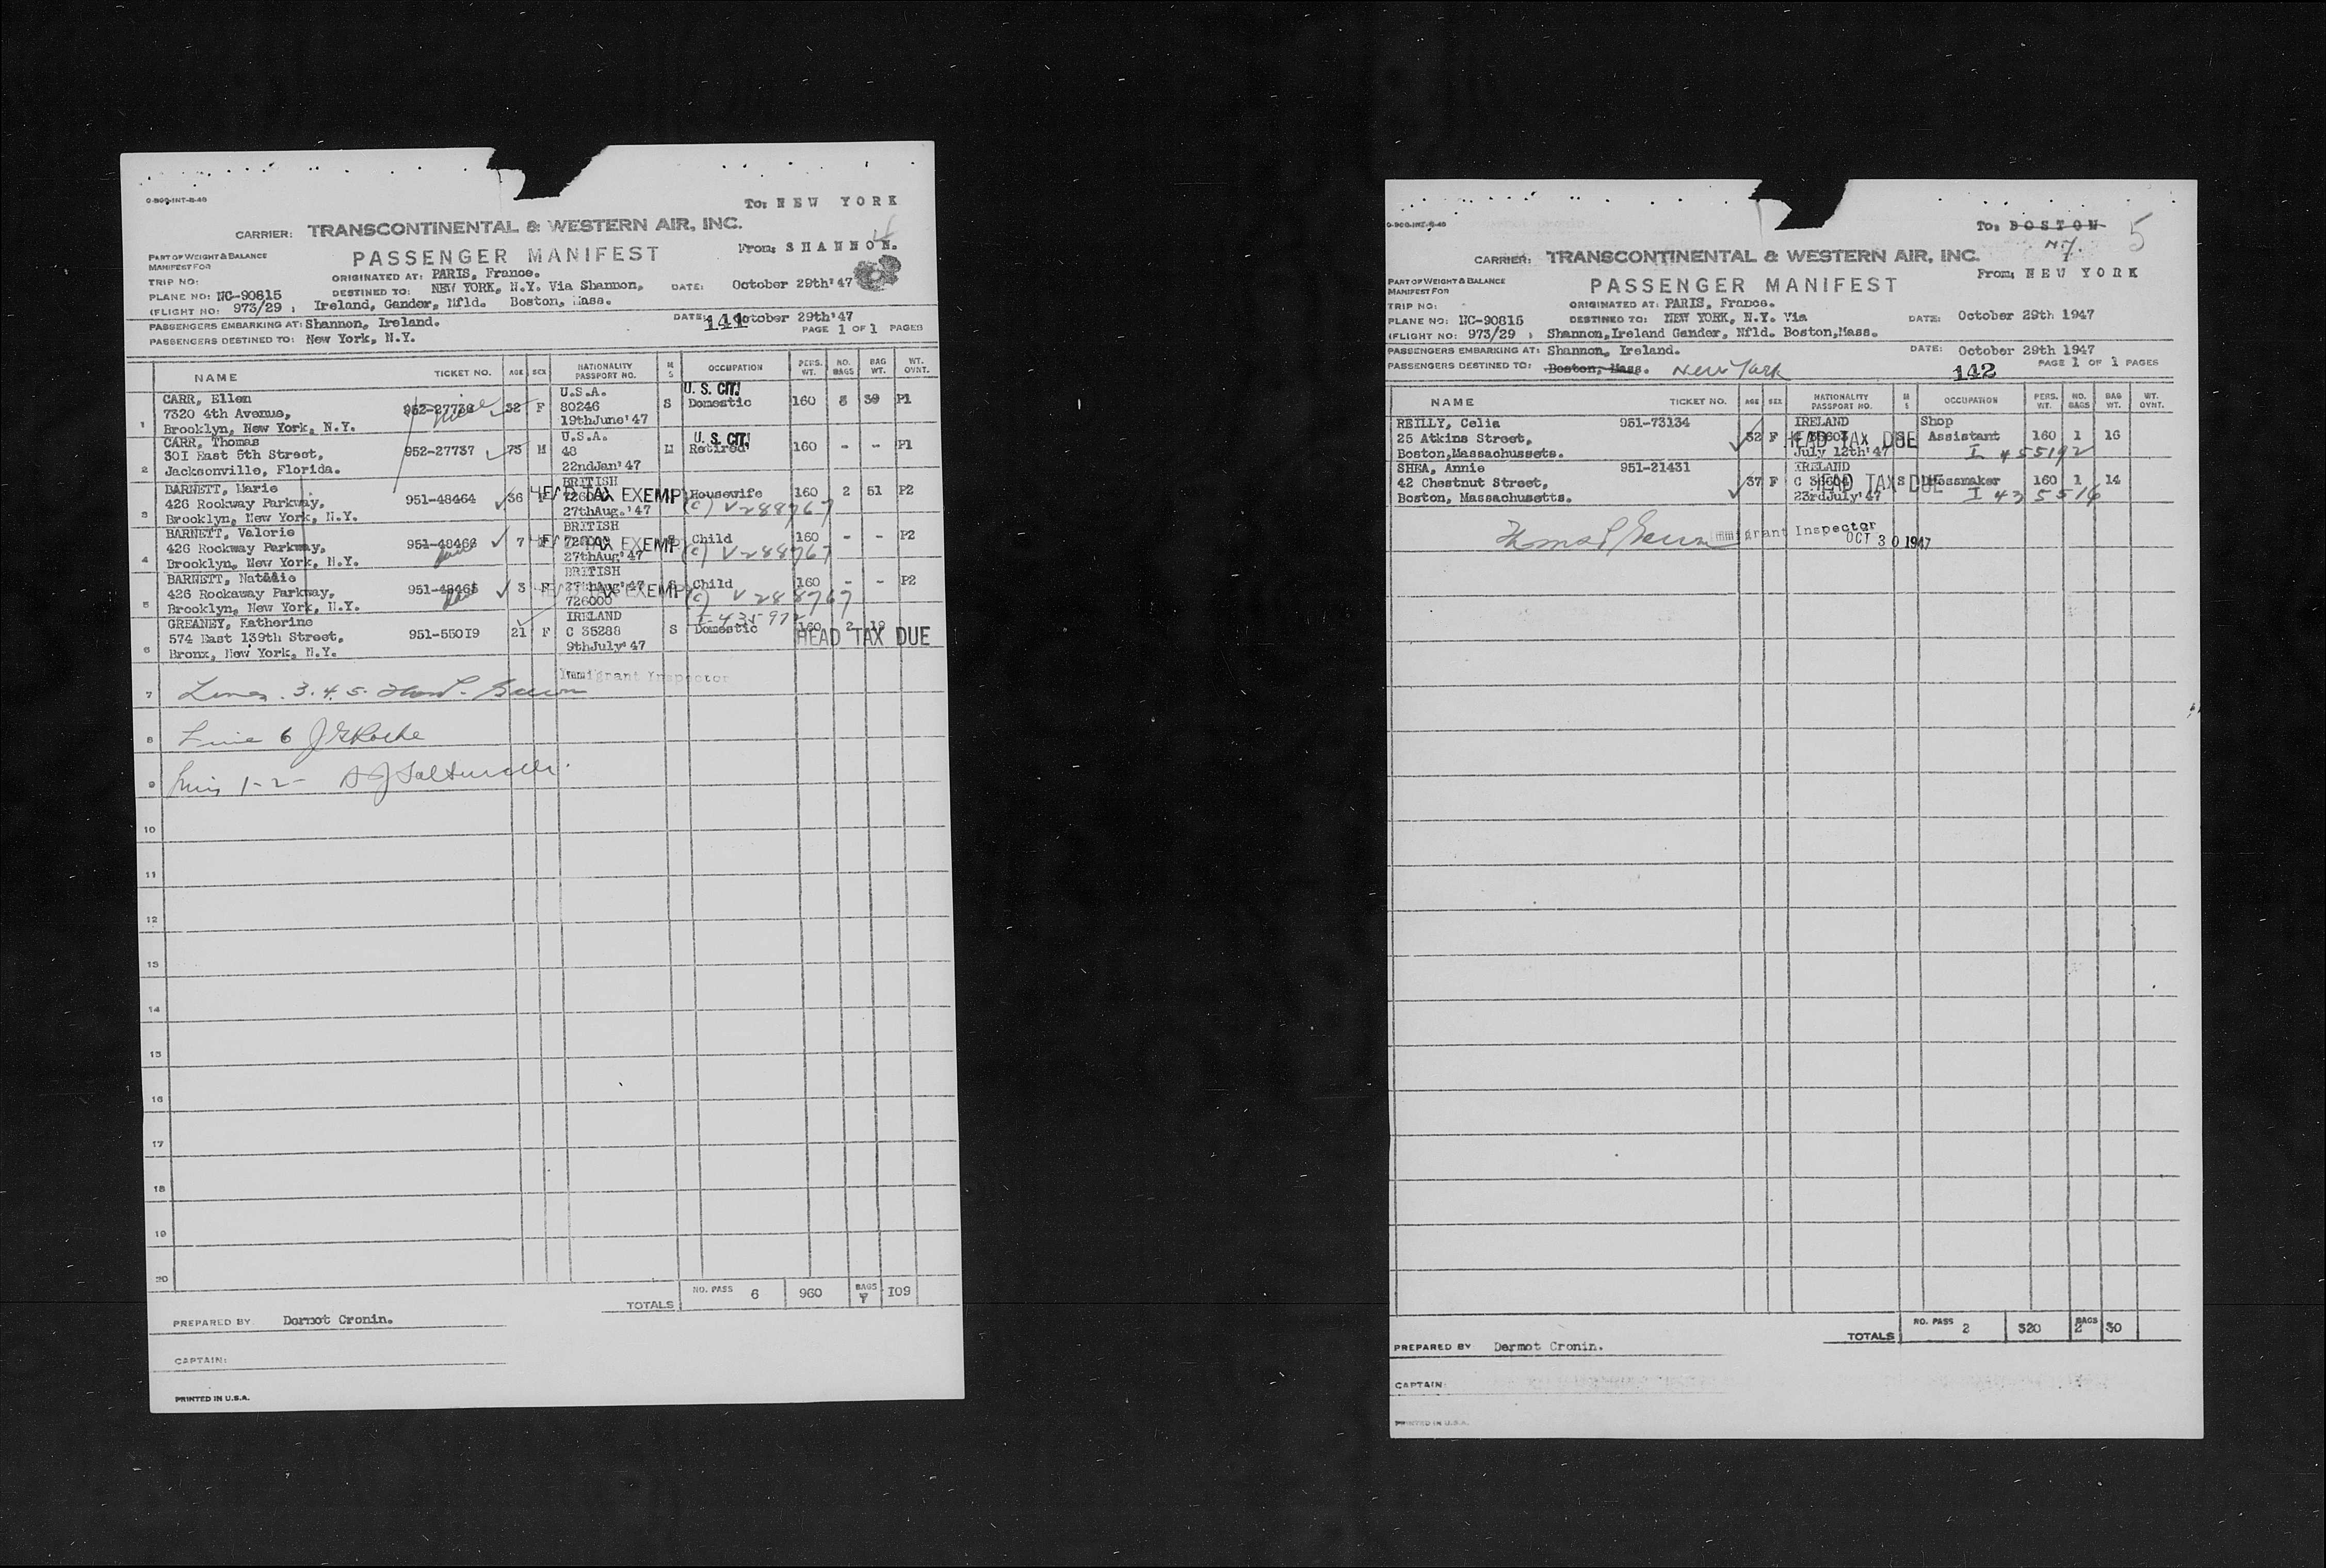 To: NEW YORK
4
CARRIER: TRANSCONTINENTAL & WESTERN AIR, INC.
PASSENGER MANIFEST From: SHANNON.
PART OF WEIGHT & BALANCE
MANIFEST FOR
TRIP NO: ORIGINATED AT: PARIS, France.
PLANE NO: NC-90815 DESTINED TO: NEW YORK, N.Y. Via Shannon, DATE: October 29th'47
(FLIGHT NO: 973/29 ; Ireland, Gander, Nfld. Boston, Mass.
PASSENGERS EMBARKING AT: Shannon, Ireland. DATE: October 29th'47
141
PASSENGERS DESTINED TO: New York, N.Y. PAGE 1 OF 1 PAGES
NAME TICKET NO. AGE SEX NATIONALITY PASSPORT NO. M S OCCUPATION PERS. WT. NO. BAGS BAG WT. WT. OVNT.
CARR, Ellen U.S.A. U. S. CIT.
1 7320 4th Avenue, 952-27736 52 F 80246 S Domestic 160 39 P1
Brooklyn, New York, N.Y. 19thJune'47
CARR, Thomas U.S.A. U. S. CIT.
2 30I East 5th Street, 952-27737 75 M 48 M Retired 160 - - P1
Jacksonville, Florida. 22ndJan'47
BARNETT, Marie BRITISH
3 426 Rockway Parkway, 951-48464 36 F 726000 HEAD TAX EXEMPT Housewife 160 2 51 P2
Brooklyn, New York, N.Y. 27thAug.'47 (C) V288767
BARNETT, Valorie BRITISH
4 426 Rockway Parkway, 951-48466 7 F 726000 HEAD TAX EXEMPT Child 160 - - P2
Brooklyn, New York, N.Y. 27thAug'47 (C) V288767
BARNETT, Natalie BRITISH
5 426 Rockaway Parkway, 951-48465 3 F 27thAug'47 S HEAD TAX EXEMPT Child 160 - - P2
Brooklyn, New York, N.Y. 726000 (C) V288767
GREANEY, Katherine IRELAND
6 574 East 139th Street, 951-550I9 21 F C 35288 S Domestic 160 2 19
Bronx, New York, N.Y. 9thJuly'47 HEAD TAX DUE
Immigrant Inspector
7 Lines 3.4.5.
8 Line 6 J G Roche
9 1-2-
10
11
12
13
14
15
16
17
18
19
20
TOTALS NO. PASS 6 960 BAGS 7 I09
PREPARED BY Dermot Cronin.
CAPTAIN:
PRINTED IN U.S.A.
To: BOSTON
N.Y. 5
CARRIER: TRANSCONTINENTAL & WESTERN AIR, INC.
From: NEW YORK
PART OF WEIGHT & BALANCE PASSENGER MANIFEST
MANIFEST FOR
TRIP NO: ORIGINATED AT: PARIS, France.
PLANE NO: NC-90815 DESTINED TO: NEW YORK, N.Y. Via DATE: October 29th 1947
(FLIGHT NO: 973/29 ; Shannon,Ireland Gander, Nfld. Boston,Mass.
PASSENGERS EMBARKING AT: Shannon, Ireland. DATE: October 29th 1947
PASSENGERS DESTINED TO: Boston, Mass. New York 142 PAGE 1 OF 1 PAGES
NAME TICKET NO. AGE SEX NATIONALITY PASSPORT NO. M S OCCUPATION PERS. WT. NO. BAGS BAG WT. WT. OVNT.
REILLY, Celia 951-73134 IRELAND Shop
25 Atkins Street, 32 F HEAD TAX DUE Assistant 160 1 16
Boston,Massachussets. July 12th'47 I 455192
SHEA, Annie 951-21431 IRELAND
42 Chestnut Street, 37 F HEAD TAX DUE S Messmaker 160 1 14
Boston, Massachusetts. 23rdJuly'47 I 435516
Immigrant Inspector
OCT 30 1947
TOTALS NO. PASS 2 320 BAGS 2 30
PREPARED BY Dermot Cronin.
CAPTAIN:
PRINTED IN U.S.A.